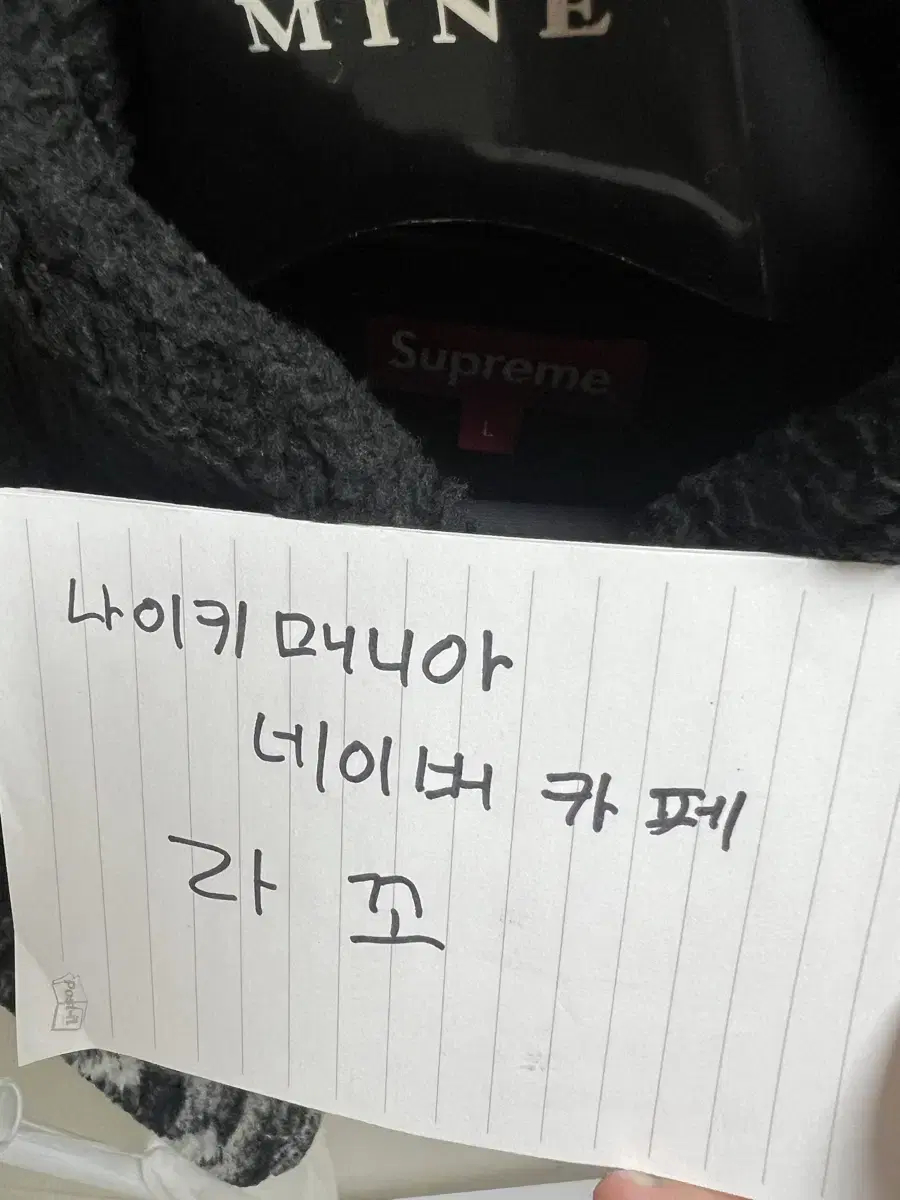 MINE
Supreme
L
나이키 매니아
네이버 카페
라 꼬